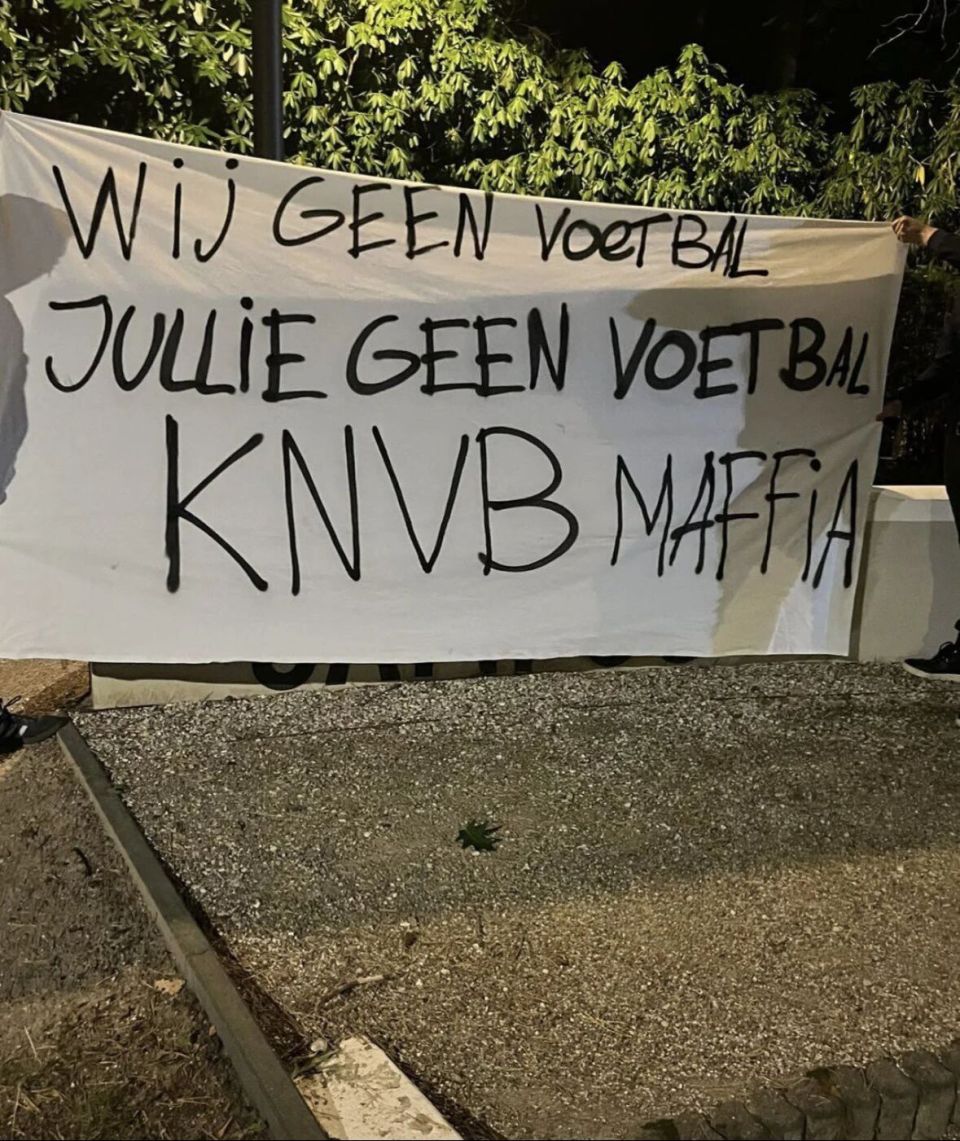 WIJ GEEN VOETBAL
JULLIE GEEN VOETBAL
KNVB MAFFIA